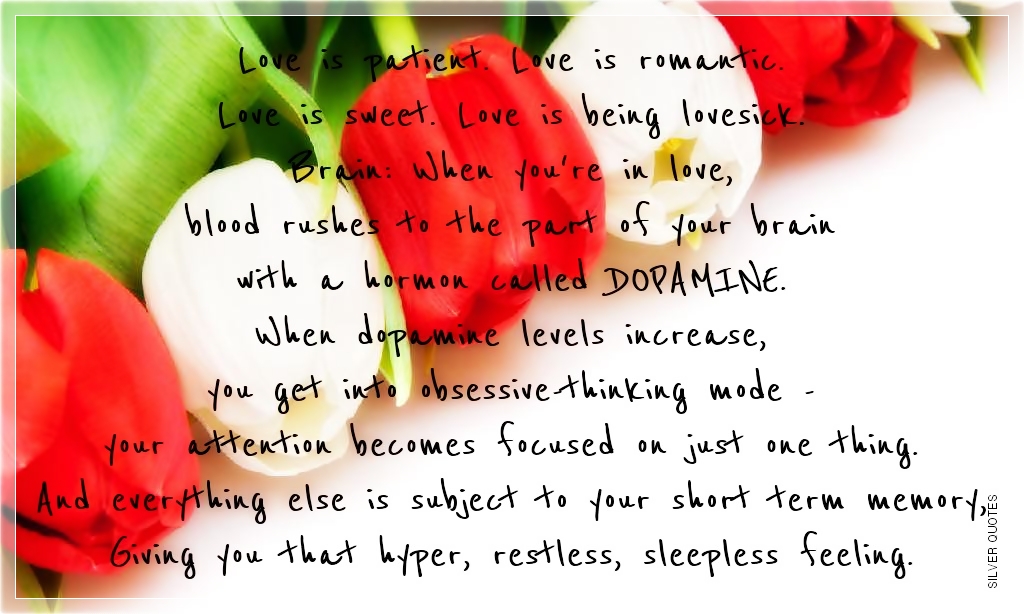 Love is patient. Love is romantic.
Love is sweet. Love is being lovesick.
Brain: When you're in love,
blood rushes to the part of your brain
with a hormon called DOPAMINE.
When dopamine levels increase,
you get into obsessive-thinking mode -
your attention becomes focused on just one thing.
And everything else is subject to your short term memory,
Giving you that hyper, restless, sleepless feeling.
SILVER QUOTES